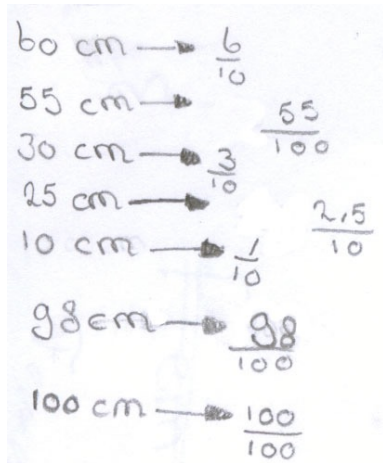 60 cm → 6/10
55 cm → 55/100
30 cm → 3/10
25 cm → 2,5/10
10 cm → 1/10
98 cm → 98/100
100 cm → 100/100